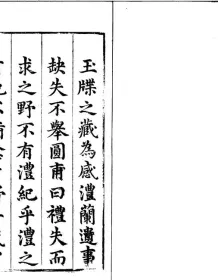 玉牒之藏為感澧蘭遺事
缺失不舉圓甫曰禮失而
求之野不有澧紀乎澧之